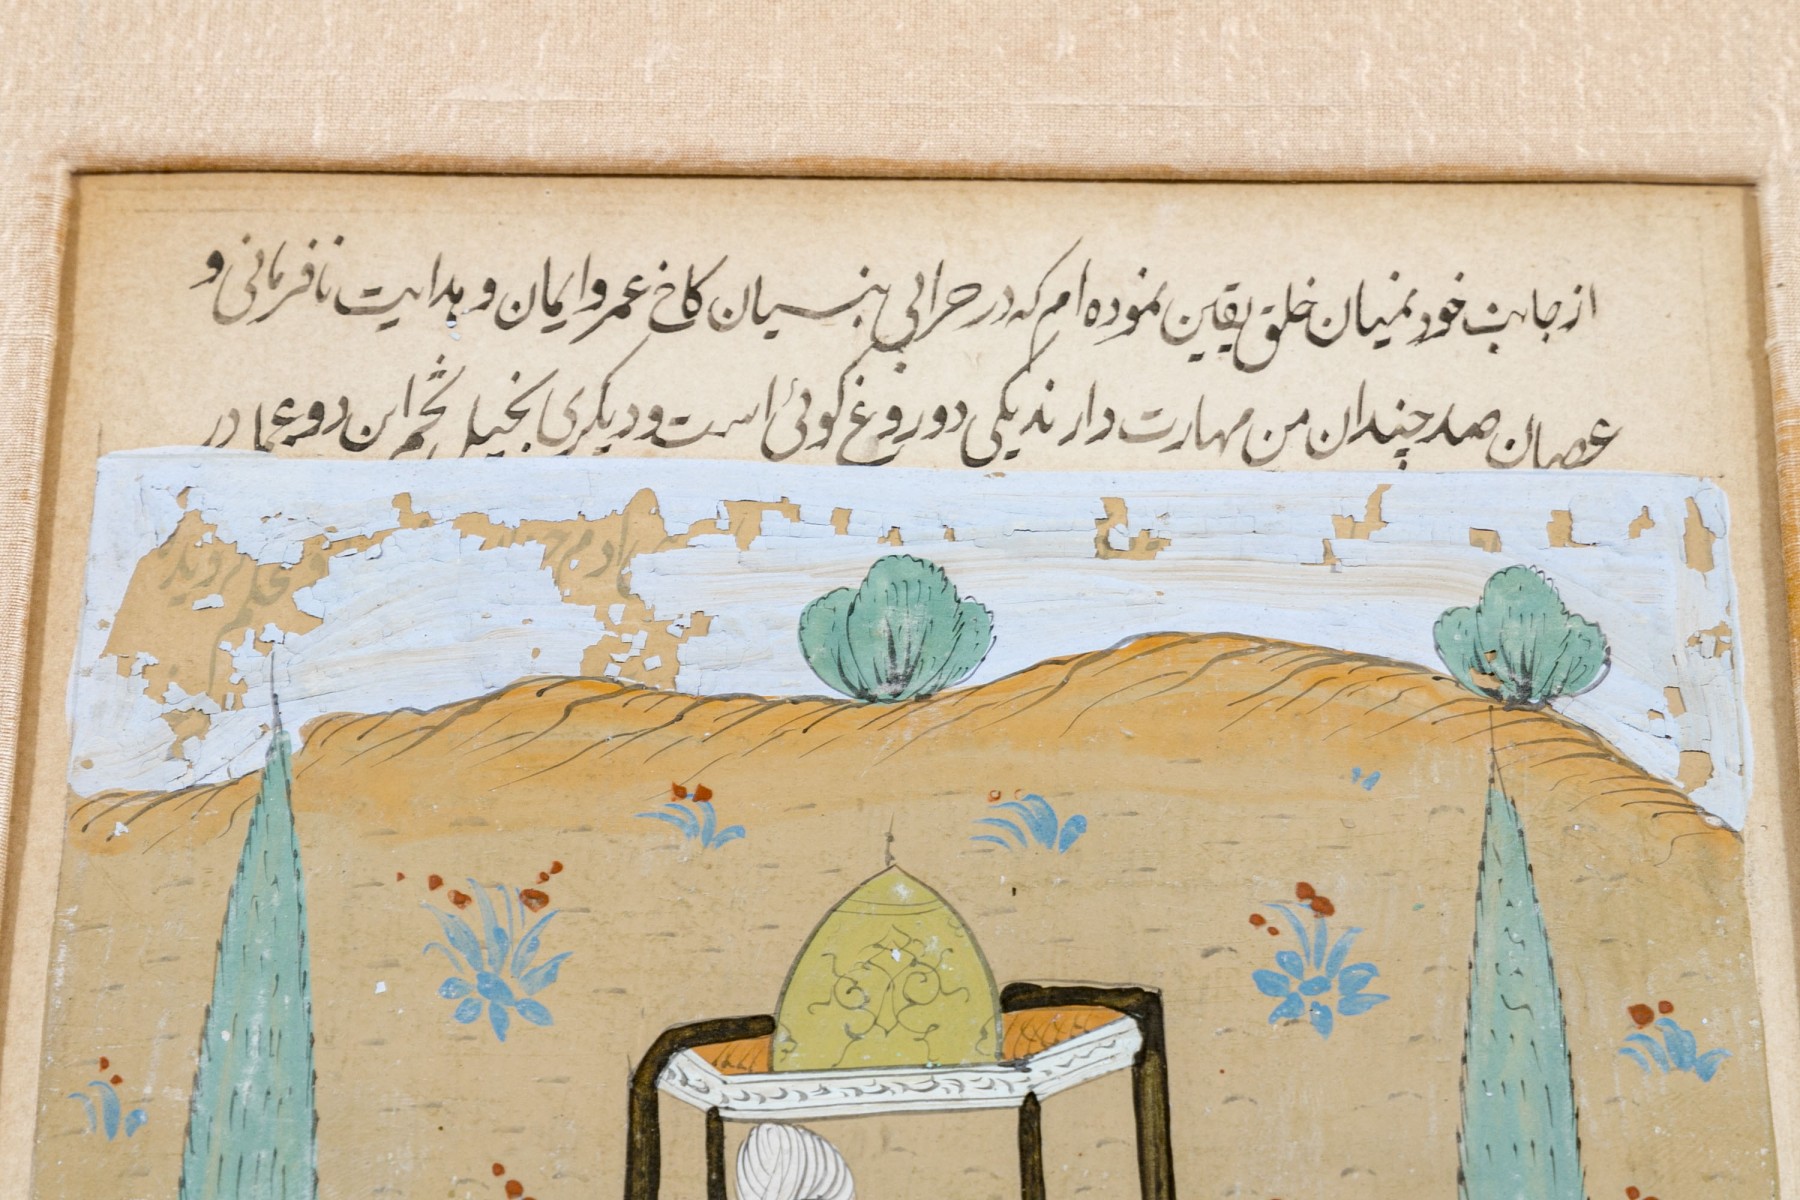 از جانب خود بمیان خلق یقین نموده ام که در خرابی بنیسان کاخ عمر و ایمان و هدایت نافرمانی و
عصان صد چندان من مهارت دارند یکی دوروغ گوئی است و دیگری بخیل این دو عما در